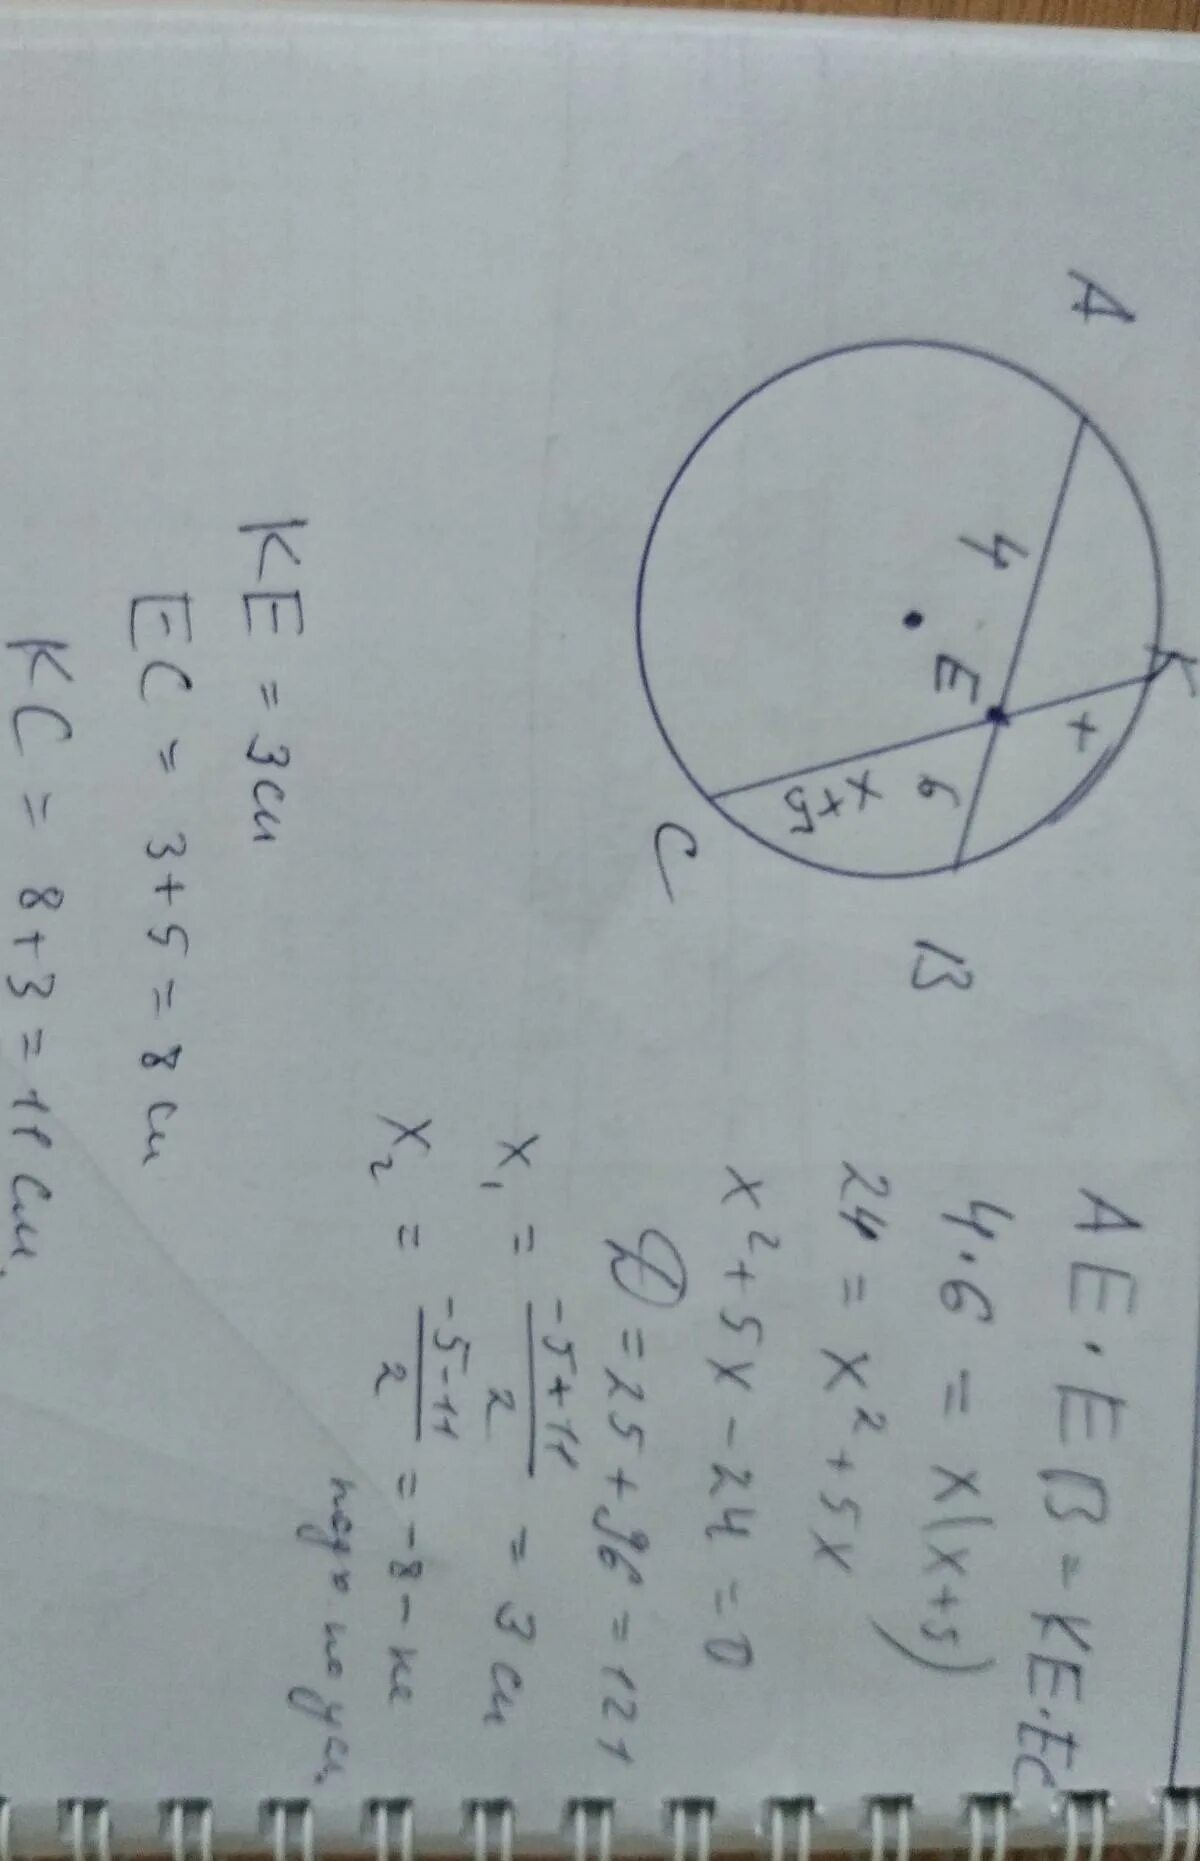 A
K
4
E
x
6
x+5
B
C
AE·EB=KE·EC
4·6 = x(x+5)
24 = x²+5x
x²+5x-24=0
D=25+96=121
x₁ = (-5+11)/2 = 3 см
x₂ = (-5-11)/2 = -8 - не
по усл.
KE = 3см
EC = 3+5=8 см
KC = 8+3=11 см.